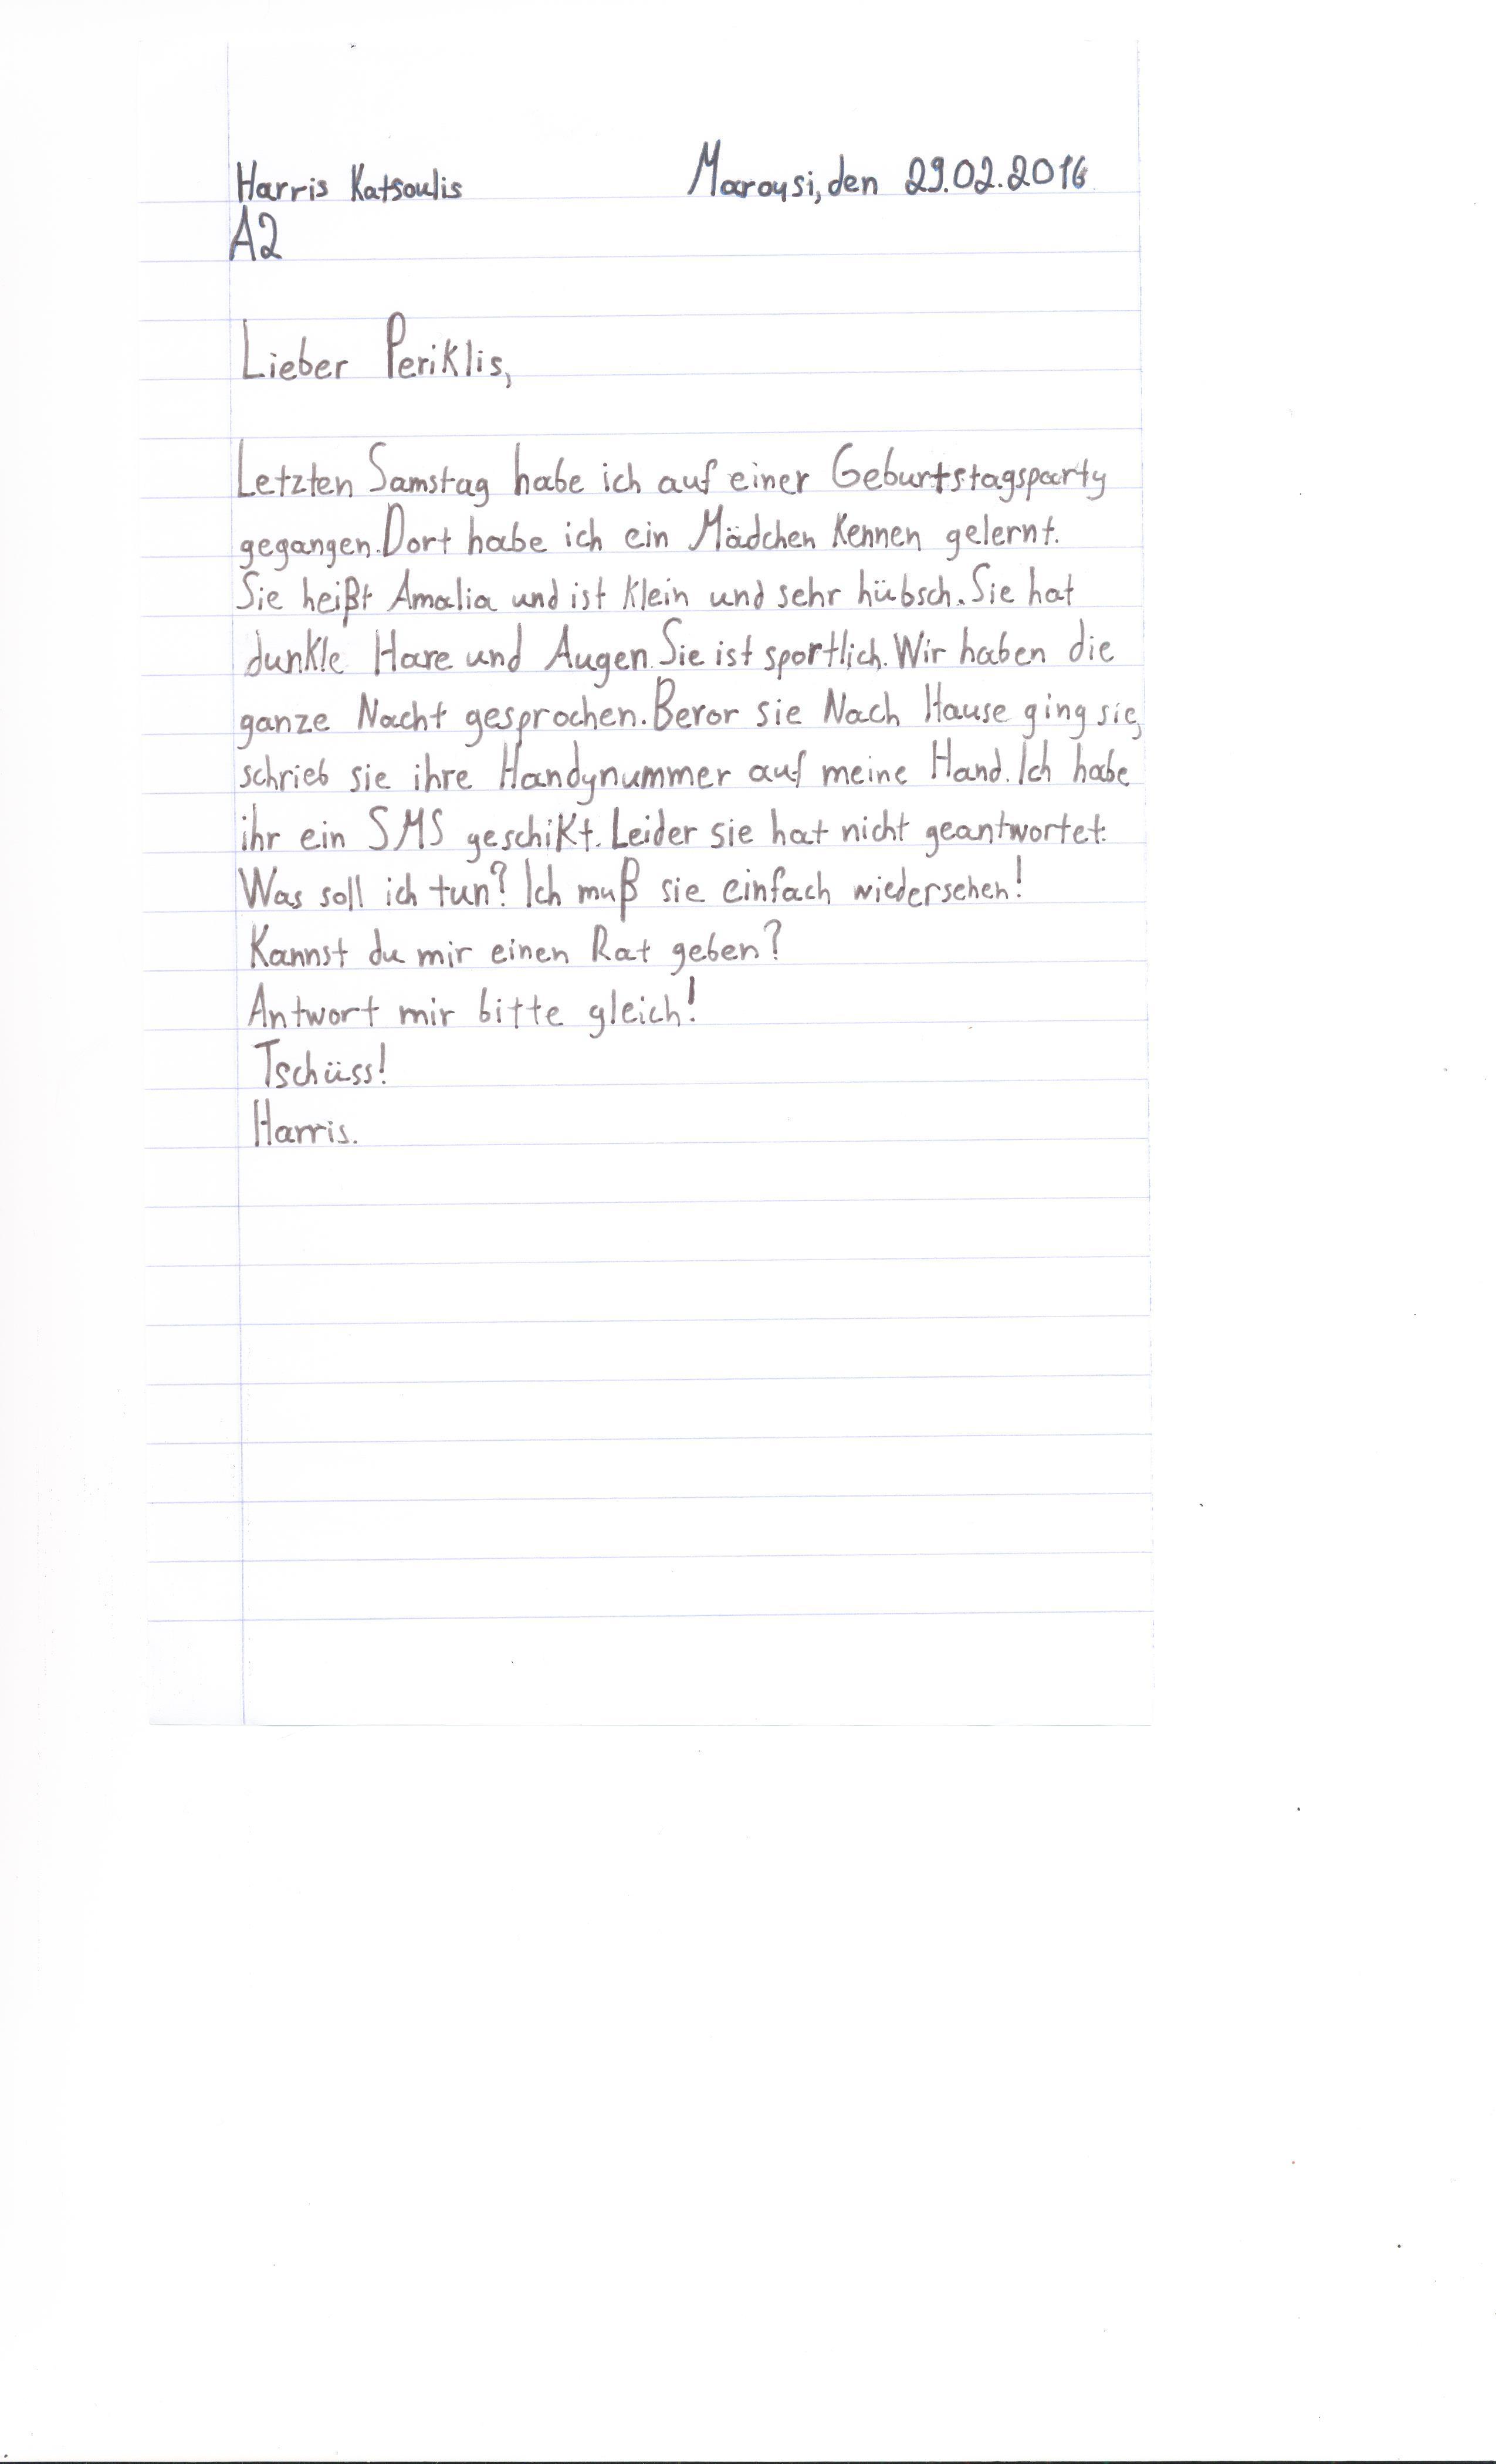 Harris Katsoulis Marousi, den 29.02.2016
A2
Lieber Periklis,
Letzten Samstag habe ich auf einer Geburtstagsparty
gegangen. Dort habe ich ein Mädchen kennen gelernt.
Sie heißt Amalia und ist klein und sehr hübsch. Sie hat
dunkle Hare und Augen. Sie ist sportlich. Wir haben die
ganze Nacht gesprochen. Bevor sie Nach Hause ging sie,
schrieb sie ihre Handynummer auf meine Hand. Ich habe
ihr ein SMS geschikt. Leider sie hat nicht geantwortet.
Was soll ich tun? Ich muß sie einfach wiedersehen!
Kannst du mir einen Rat geben?
Antwort mir bitte gleich!
Tschüss!
Harris.